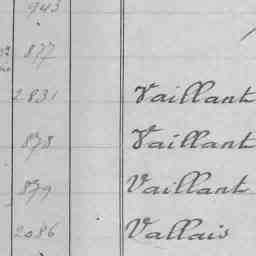 943
877
2831 Vaillant
878 Vaillant
879 Vaillant
2086 Vallais